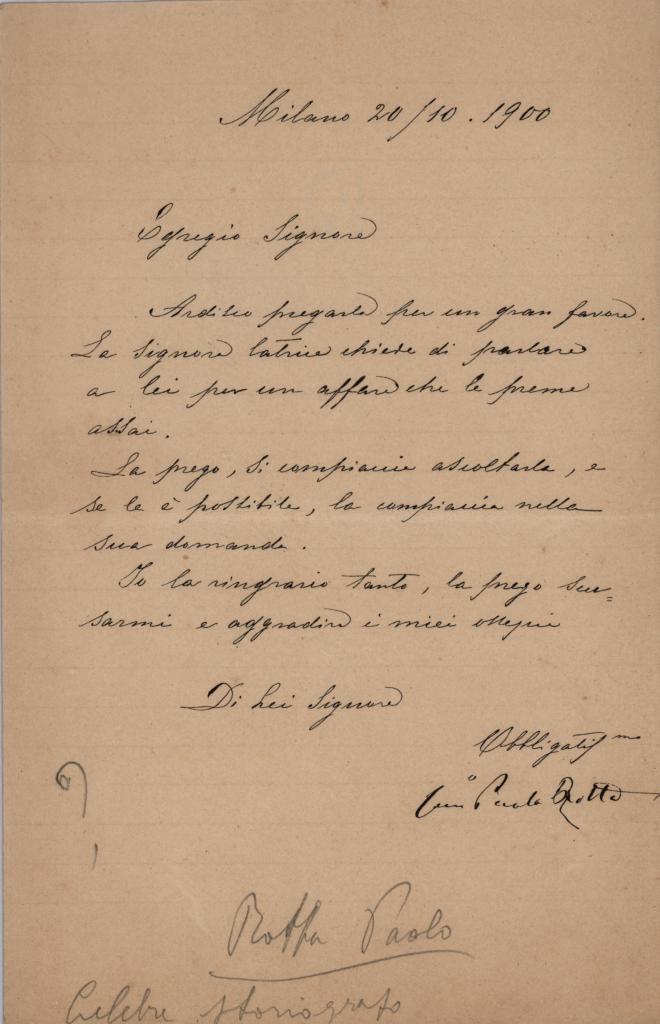 Milano 20/10. 1900
Egregio Signore
Ardisco pregarla per un gran favore.
La Signora latrice chiede di parlare
a lei per un affare che le preme
assai.
La prego, si compiaccia ascoltarla, e
se le è possibile, la compiaccia nella
sua domanda.
Io la ringrazio tanto, la prego scu=
sarmi e aggradire i miei ossequi
Di Lei Signore
Obbligatiss mo
Paolo Rotta
?
Rotta Paolo
Celebre storiografo